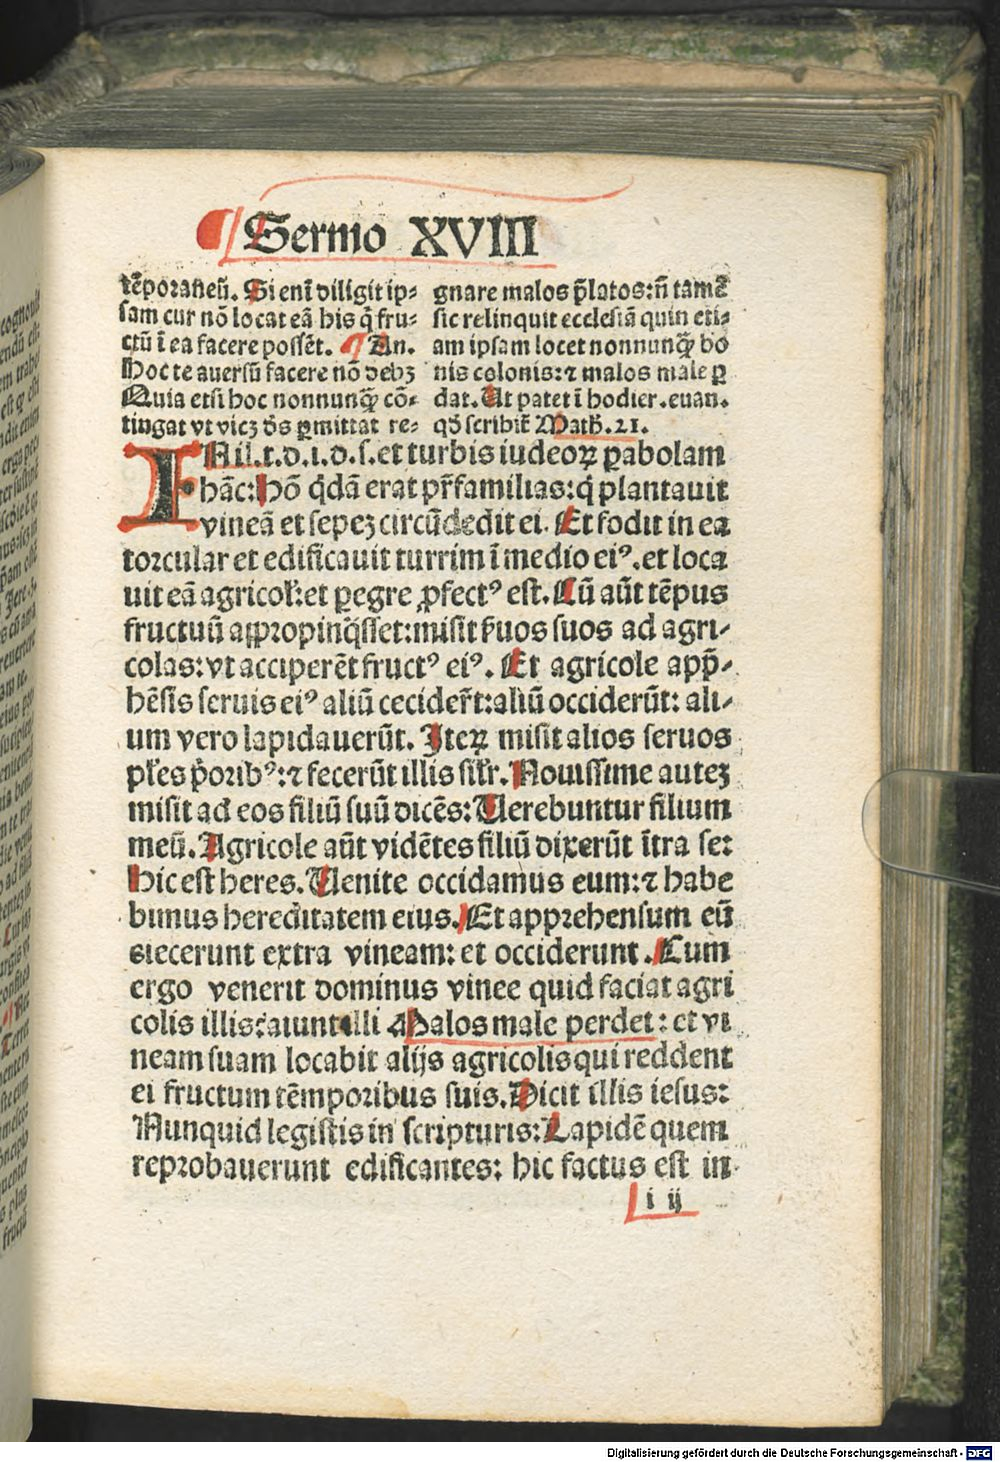 Sermo XVIII
tẽporaneũ. Si enĩ diligit ip⸗
sam cur nõ locat eã his q̃ fru⸗
ctũ ĩ ea facere possẽt. ¶ An.
Hoc te auersũ facere nõ debꝫ
Quia etsi hoc nonnunq̃ꝫ cõ⸗
tingat vt vicꝫ dñs ꝑmittat re⸗
gnare malos p̃latos: ñ tamẽ
sic relinquit ecclesiã quin eti⸗
am ipsam locet nonnunq̃ꝫ bo
nis colonis: ⁊ malos male ꝑ
dat. Ut patet ĩ hodier. euan.
qđ scribit̃ Math. 21.
IN il. t. d. i. d. s. et turbis iudeoꝝ ꝑabolam
hãc: Hõ q̃dã erat pr̃familias: q̃ plantauit
vineã et sepeꝫ circũdedit ei. Et fodit in ea
torcular et edificauit turrim ĩ medio eiꝰ. et loca
uit eã agricoł: et ꝑegre ꝓfectꝰ est. Cũ aũt tẽpus
fructuũ appropinq̃sset: misit s̃uos suos ad agri⸗
colas: vt acciperẽt fructꝰ eiꝰ. Et agricole app̃⸗
hẽsis seruis eiꝰ aliũ cecider̃t: aliũ occiderũt: ali⸗
um vero lapidauerũt. Iteꝝ misit alios seruos
płes p̃oribꝰ: ⁊ fecerũt illis sił̃r. Nouissime auteꝫ
misit ad eos filiũ suũ dicẽs: Uerebuntur filium
meũ. Agricole aũt vidẽtes filiũ dixerũt ĩtra se:
Hic est heres. Uenite occidamus eum: ⁊ habe
bimus hereditatem eius. Et apprehensum eũ
eiecerunt extra vineam: et occiderunt. Cum
ergo venerit dominus vinee quid faciat agri
colis illis: aiunt illi Malos male perdet: et vi
neam suam locabit alijs agricolis qui reddent
ei fructum tẽmporibus suis. Dicit illis iesus:
Nunquid legistis in scripturis: Lapidẽ quem
reprobauerunt edificantes: hic factus est in
i ij
Digitalisierung gefördert durch die Deutsche Forschungsgemeinschaft - DFG